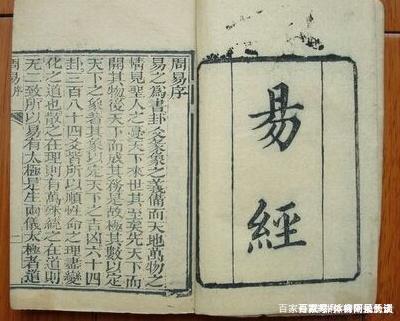 易經
周易序
易之為書卦爻彖象之義備而天地萬物之
情見聖人之憂天下來世其至矣先天下而
開其物後天下而成其務是故極其數以定
天下之象著其象以定天下之吉凶六十四
卦三百八十四爻皆所以順性命之理盡變
化之道也散之在理則有萬殊統之在道則
无二致所以易有太極是生兩儀太極者道
周易序